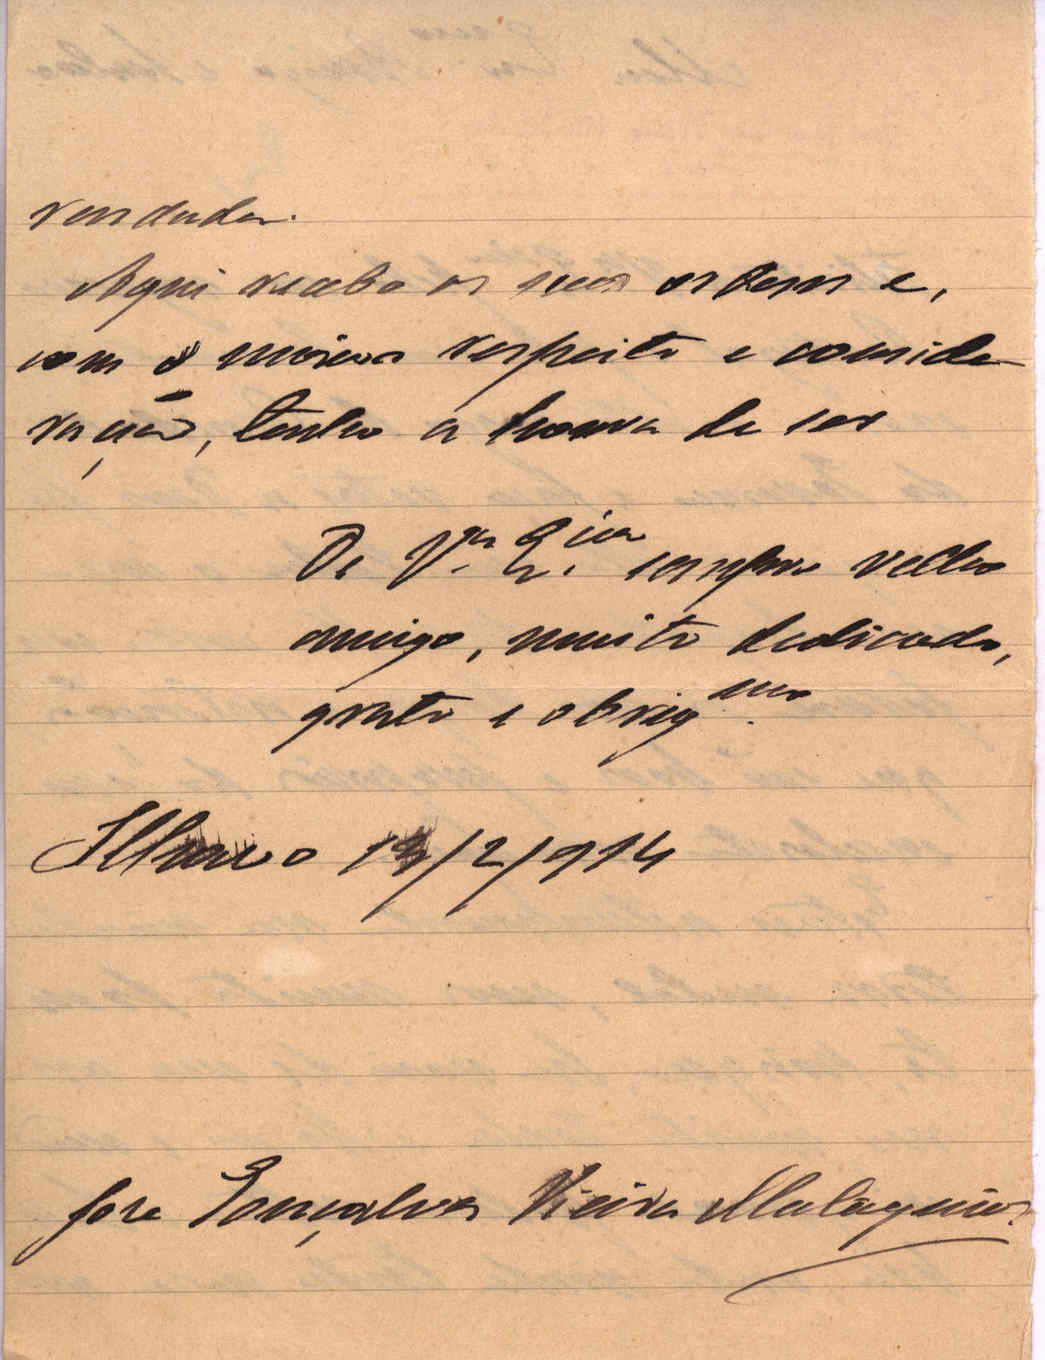 Aqui recebo as suas ordens e,
com o maior respeito e conside
ração, tenho a honra de ser
De V.ª Ex.cia sempre velho
amigo, muito dedicado,
grato e obrig.mo
Ilhavo /2/914
José Gonçalves Vieira Malaguêas